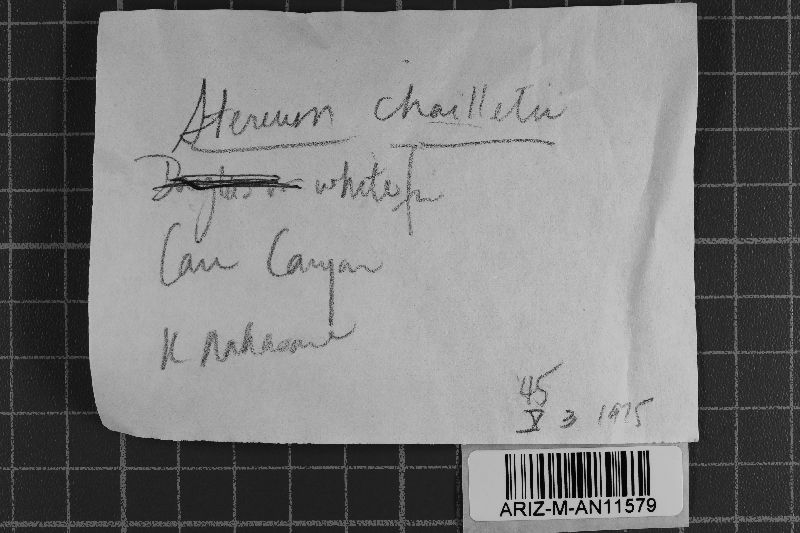 Stereum chailletii
Douglas fir white fir
Carr Canyon
K Nakasone
45
V 3 1975
ARIZ-M-AN11579